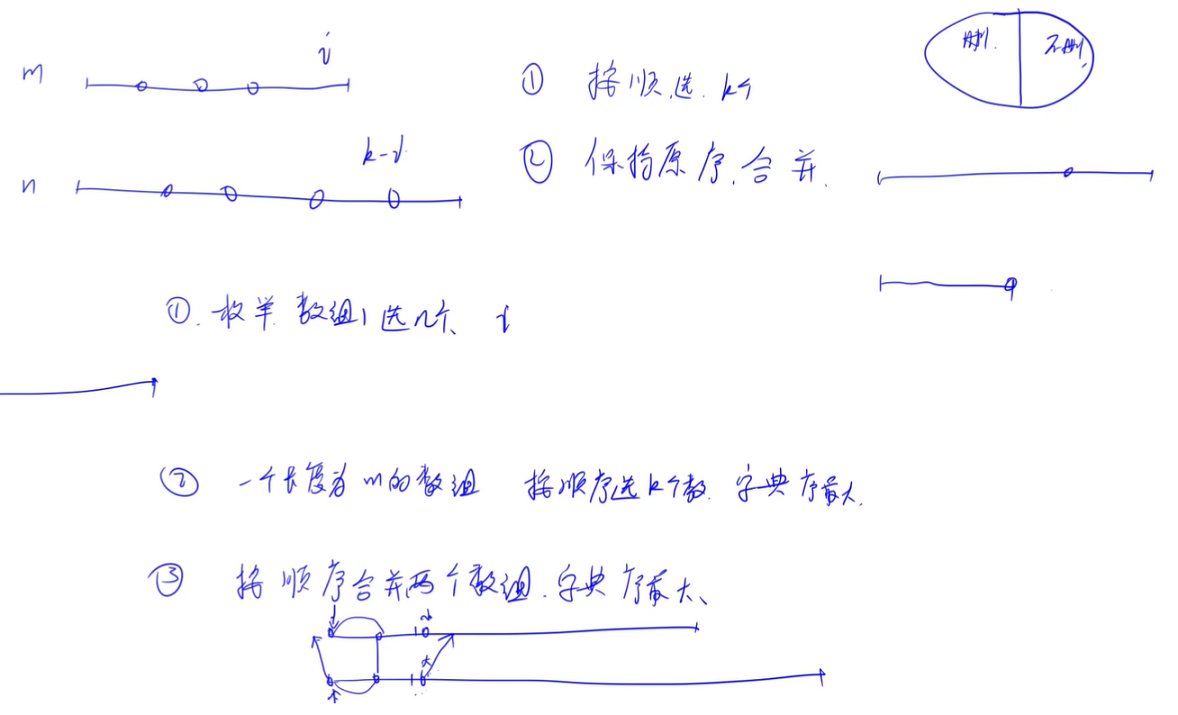 m i
n k-i
① 按顺选 k个
② 保持原序，合并.
删. 不删
①. 枚举 数组1选几个、 i
② 一个长度为 m的数组 按顺序选k个数. 字典序最大.
③ 按顺序合并两个数组. 字典序最大、